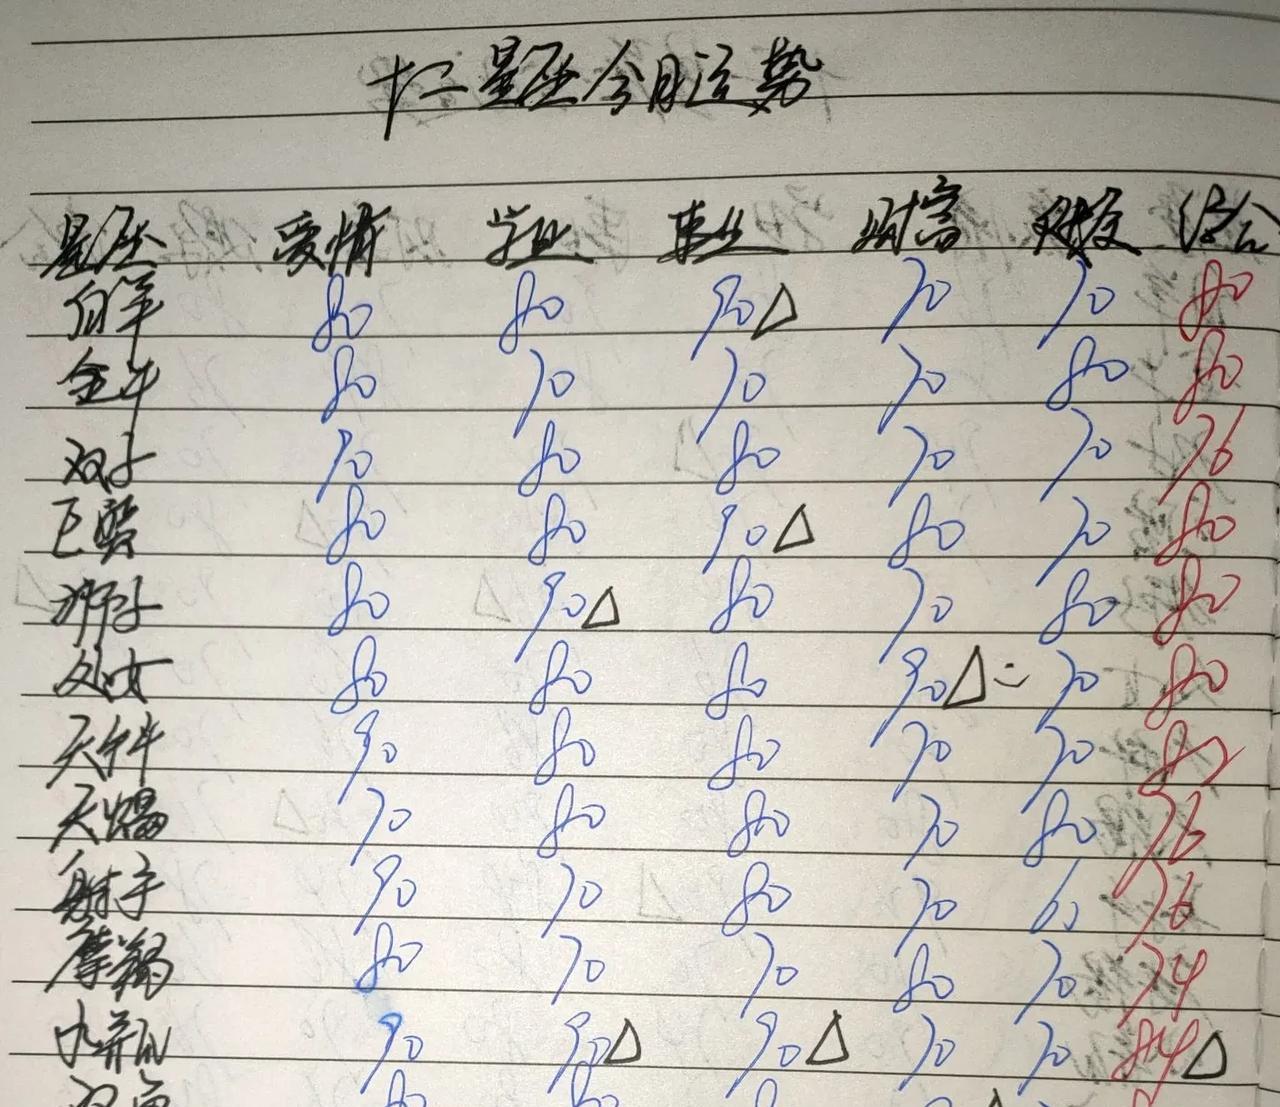 十二星座今月运势
星座 爱情 学业 事业 财富 社交 综合
白羊 80 80 90△ 70 70 80
金牛 80 70 70 70 80 80
双子 90 80 80 70 70 76
巨蟹 80 80 90△ 80 70 80
狮子 80 90△ 80 70 80 80
处女 80 80 80 90△ 70 80
天秤 90 80 80 70 70
天蝎 70 80 80 70 80 76
射手 90 70 80 70 60 76
摩羯 80 70 70 80 70 74
水瓶 90 90△ 90△ 70 70 84△
双鱼 80 80